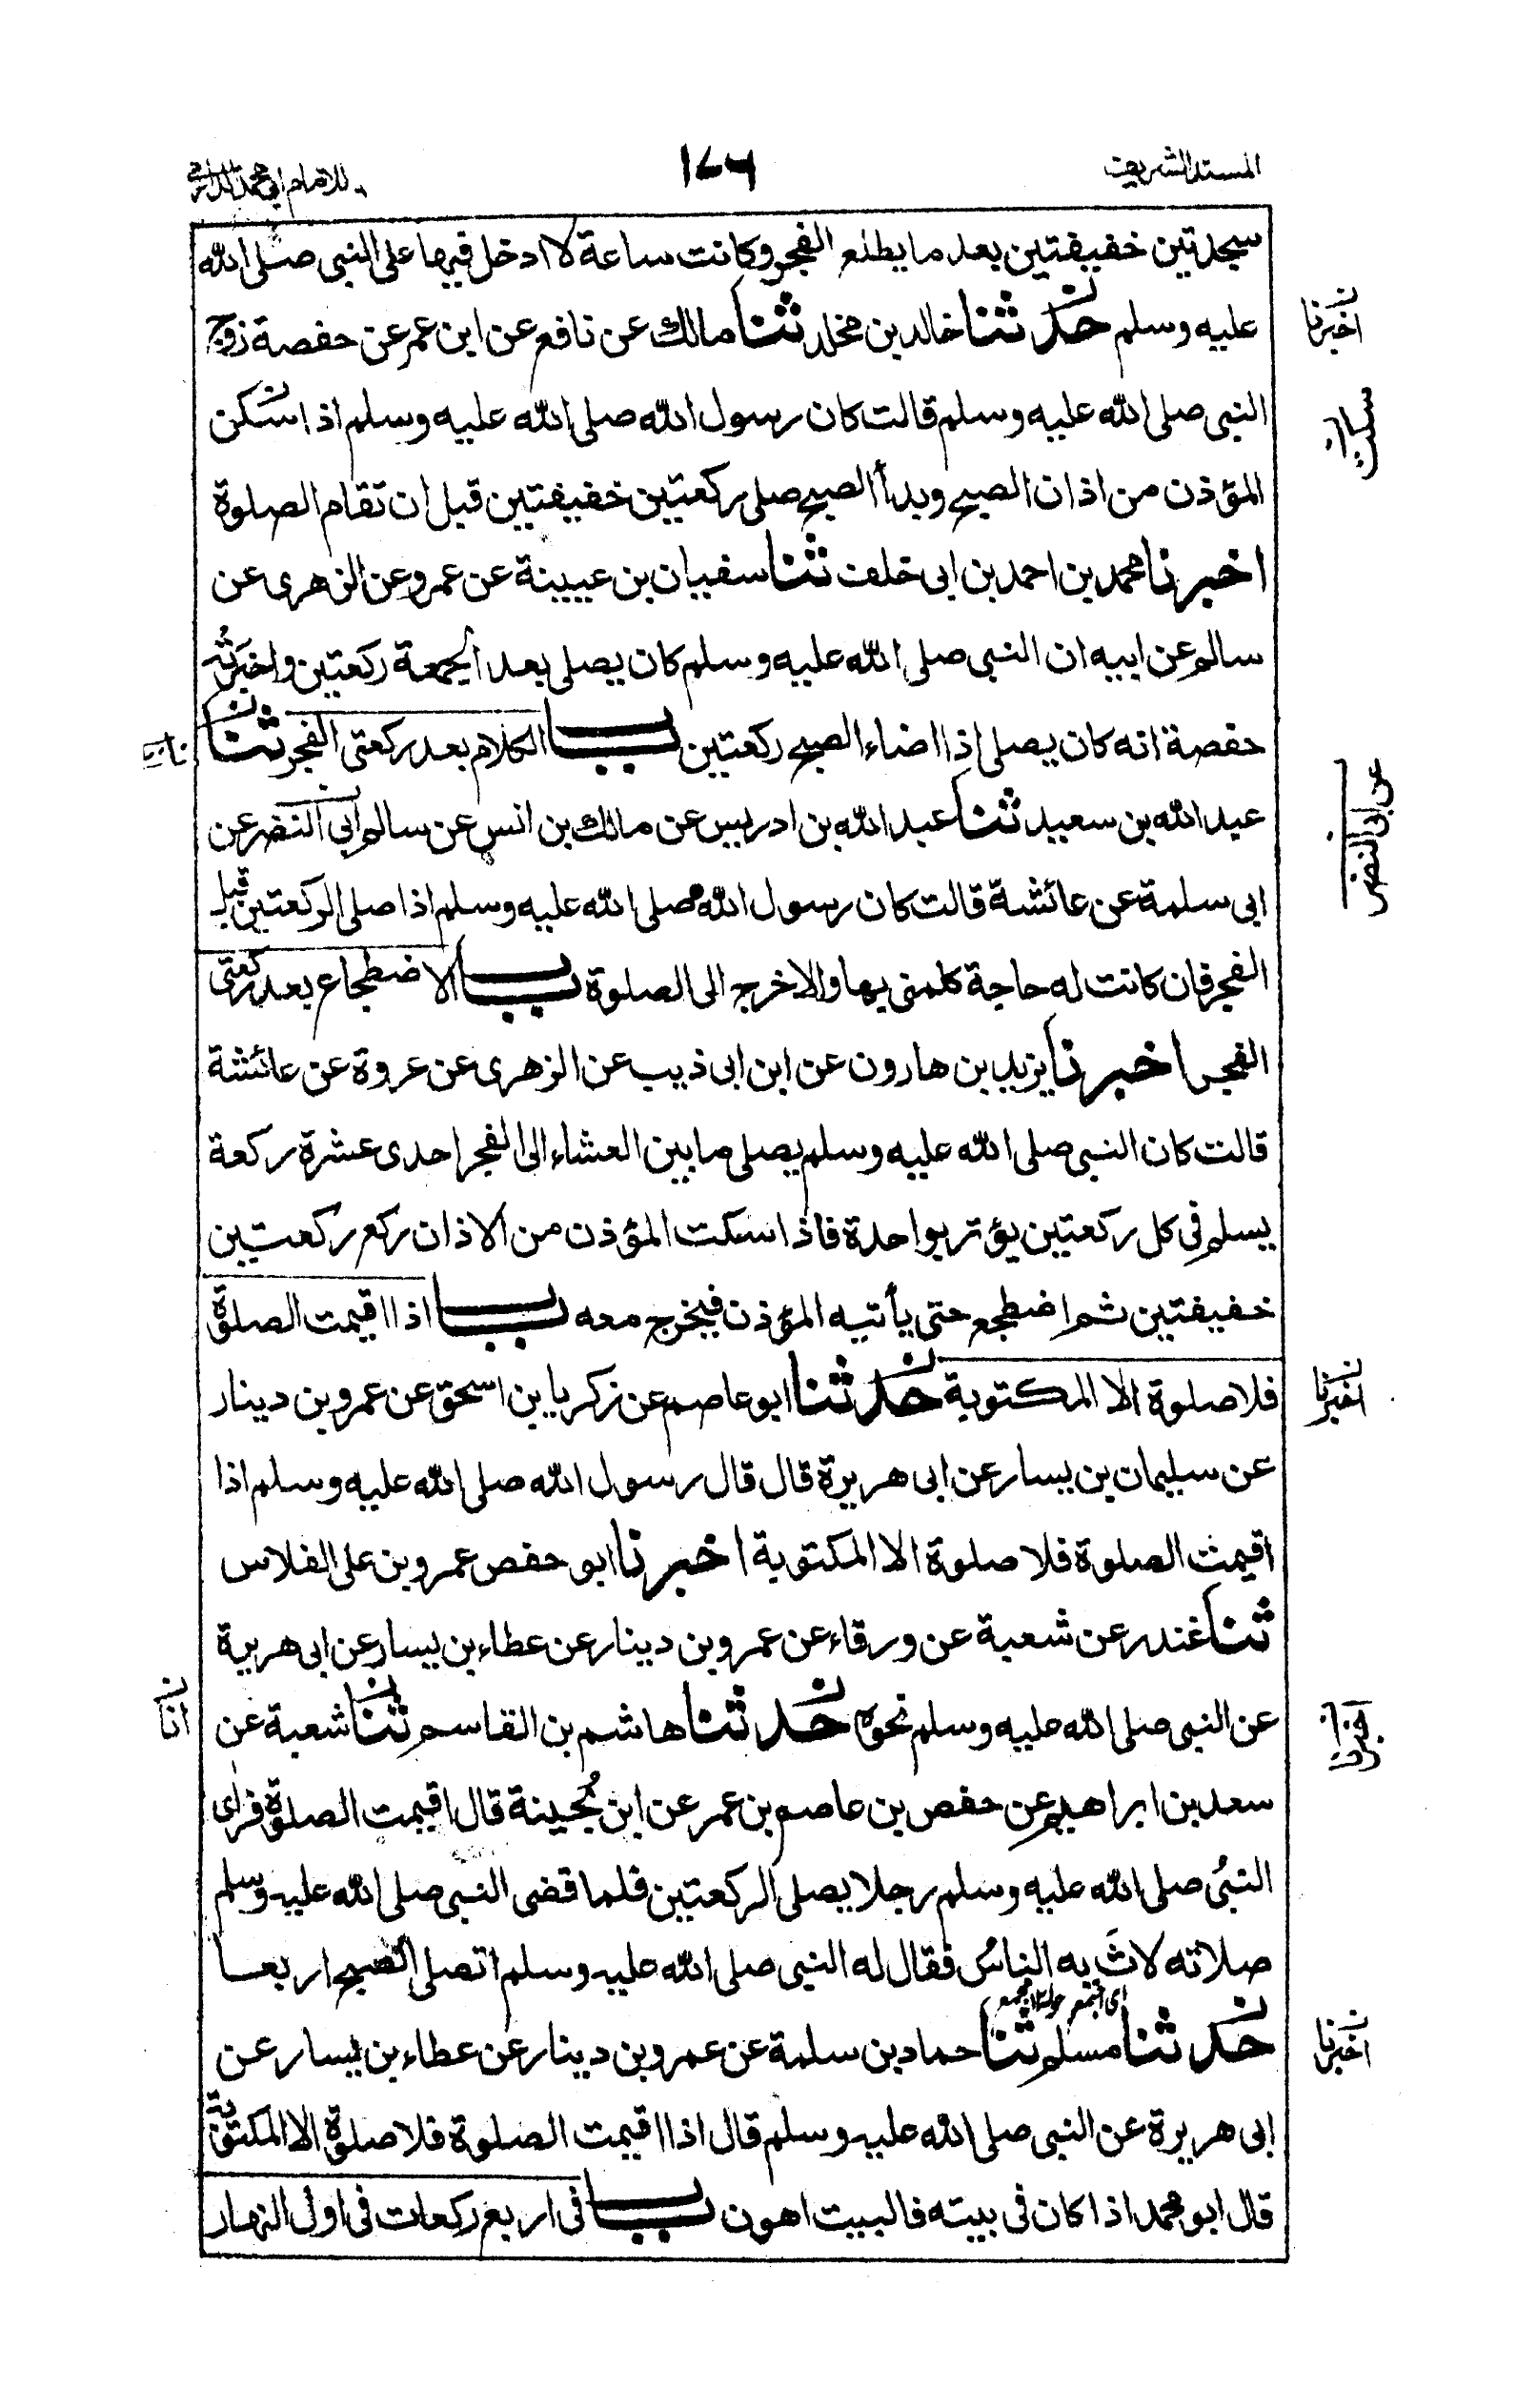 المسند الشريف
١٧٦
للامام ابى محمد الدارمى
سجدتين خفيفتين بعد ما يطلع الفجر وكانت ساعة لا ادخل فيها على النبى صلى الله
عليه وسلم حدثنا خالد بن مخلد ثنا مالك عن نافع عن ابن عمر عن حفصة زوج
اخبرنا
النبى صلى الله عليه وسلم قالت كان رسول الله صلى الله عليه وسلم اذا سكن
سكت
المؤذن من اذان الصبح وبدأ الصبح صلى ركعتين خفيفتين قبل ان تقام الصلوة
اخبرنا محمد بن احمد بن ابى خلف ثنا سفيان بن عيينة عن عمرو عن الزهرى عن
سالم عن ابيه ان النبى صلى الله عليه وسلم كان يصلى بعد الجمعة ركعتين واخبرته
حفصة انه كان يصلى اذا اضاء الصبح ركعتين باب الكلام بعد ركعتى الفجر ثنا
عبد الله بن سعيد ثنا عبد الله بن ادريس عن مالك بن انس عن سالم ابى النضر عن
عن ابى النضر
ابى سلمة عن عائشة قالت كان رسول الله صلى الله عليه وسلم اذا صلى الركعتين قبل
الفجر فان كانت له حاجة كلمنى بها والا خرج الى الصلوة باب الاضطجاع بعد ركعتى
الفجر اخبرنا يزيد بن هارون عن ابن ابى ذيب عن الزهرى عن عروة عن عائشة
قالت كان النبى صلى الله عليه وسلم يصلى ما بين العشاء الى الفجر احدى عشرة ركعة
يسلم فى كل ركعتين يؤتر بواحدة فاذا سكت المؤذن من الاذان ركع ركعتين
خفيفتين ثم اضطجع حتى يأتيه المؤذن فيخرج معه باب اذا اقيمت الصلوة
فلا صلوة الا المكتوبة حدثنا ابو عاصم عن زكريا بن اسحق عن عمرو بن دينار
اخبرنا
عن سليمان بن يسار عن ابى هريرة قال قال رسول الله صلى الله عليه وسلم اذا
اقيمت الصلوة فلا صلوة الا المكتوبة اخبرنا ابو حفص عمرو بن على الفلاس
ثنا غندر عن شعبة عن ورقاء عن عمرو بن دينار عن عطاء بن يسار عن ابى هريرة
عن النبى صلى الله عليه وسلم نحوه حدثنا هاشم بن القاسم ثنا شعبة عن
انا
سعد بن ابراهيم عن حفص بن عاصم بن عمر عن ابن بُحينة قال اقيمت الصلوة فراى
النبى صلى الله عليه وسلم رجلا يصلى الركعتين فلما قضى النبى صلى الله عليه وسلم
صلاته لاثَ به الناسُ فقال له النبى صلى الله عليه وسلم اتصلى الصبح اربعا
حدثنا مسلم ثنا حماد بن سلمة عن عمرو بن دينار عن عطاء بن يسار عن
اخبرنا
ابى هريرة عن النبى صلى الله عليه وسلم قال اذا اقيمت الصلوة فلا صلوة الا المكتوبة
قال ابو محمد اذا كان فى بيته فالبيت اهون باب فى اربع ركعات فى اول النهار